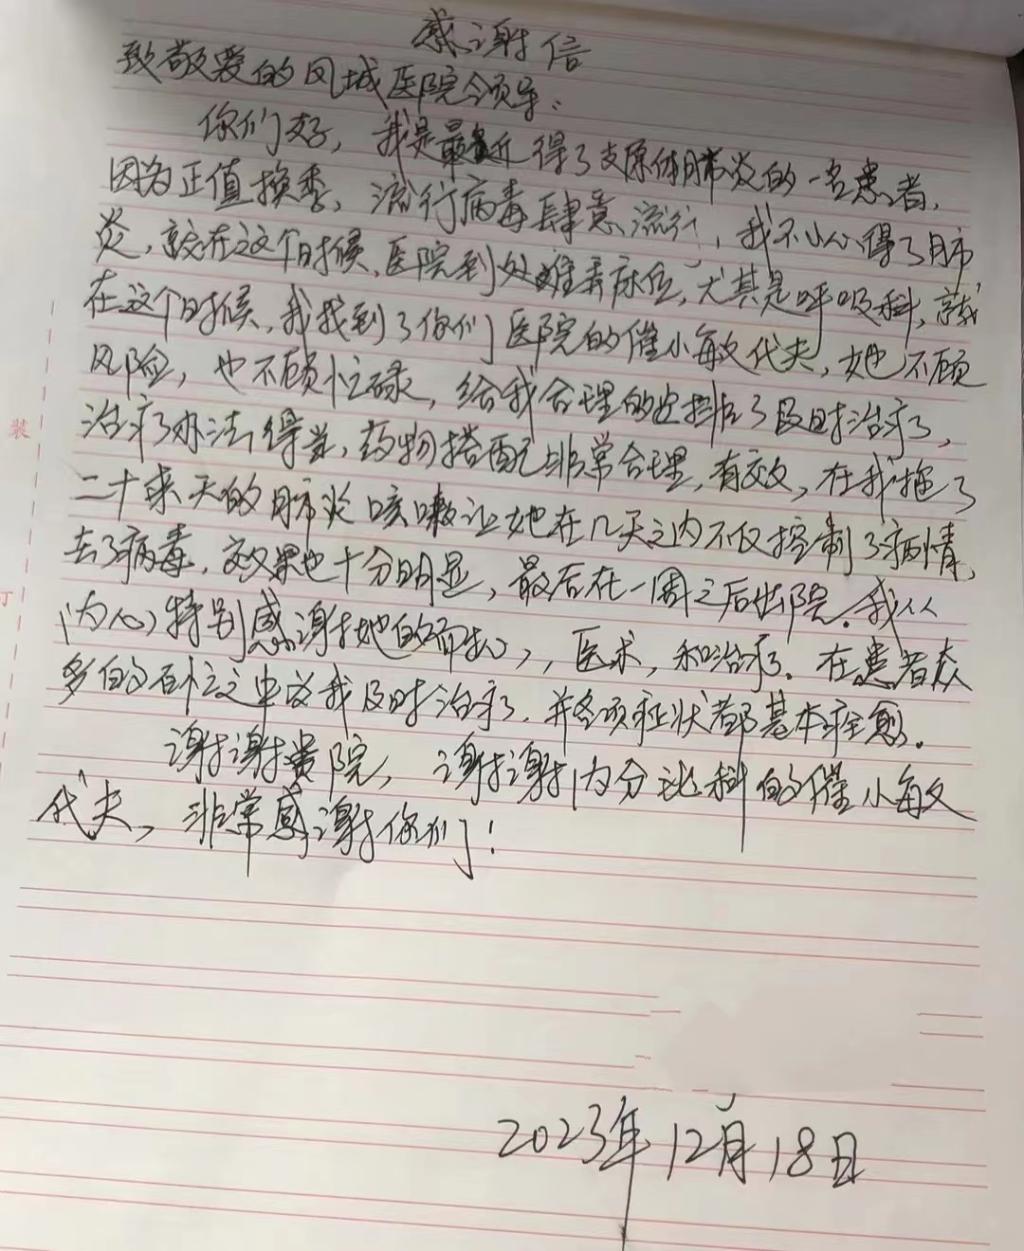 感谢信
致敬爱的凤城医院领导:
你们好,我是最近得了支原体肺炎的一名患者,
因为正值换季,流行病毒肆意流行,我不小心得了肺
炎,就在这个时候,医院到处难弄床位,尤其是呼吸科,就
在这个时候,我找到了你们医院的催小敏代夫,她不顾
风险,也不顾忙碌,给我合理的安排了及时治疗,
治疗办法得当,药物搭配非常合理,有效,在我拖了
二十来天的肺炎咳嗽让她在几天之内不仅控制了病情,
去了病毒,效果也十分明显,最后在一周之后出院.我从
内心特别感谢她的,医术,和治疗.在患者众
多的之中给我及时治疗,并各项症状都基本痊愈.
谢谢贵院,谢谢内分泌科的催小敏
代夫,非常感谢你们!
2023年12月18日
装
订